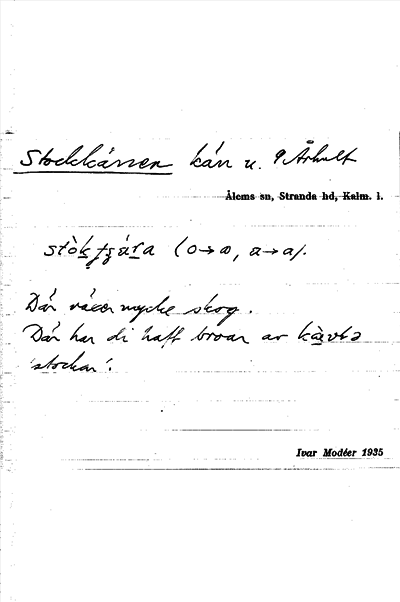 Stockkärren kärr u. 9 Århult
Ålems sn, Stranda hd, Kalm. l.
Där växer mycke skog.
Där har di haft broar av
'stockar'.
Ivar Modéer 1935